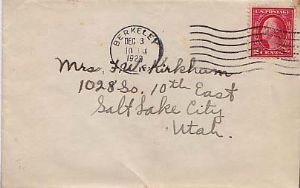 BERKELEY
DEC 3
1923
U.S. POSTAGE
2 CENTS 2
Mrs. F.W. Kirkham
1028 So. 10th East
Salt Lake City
Utah.